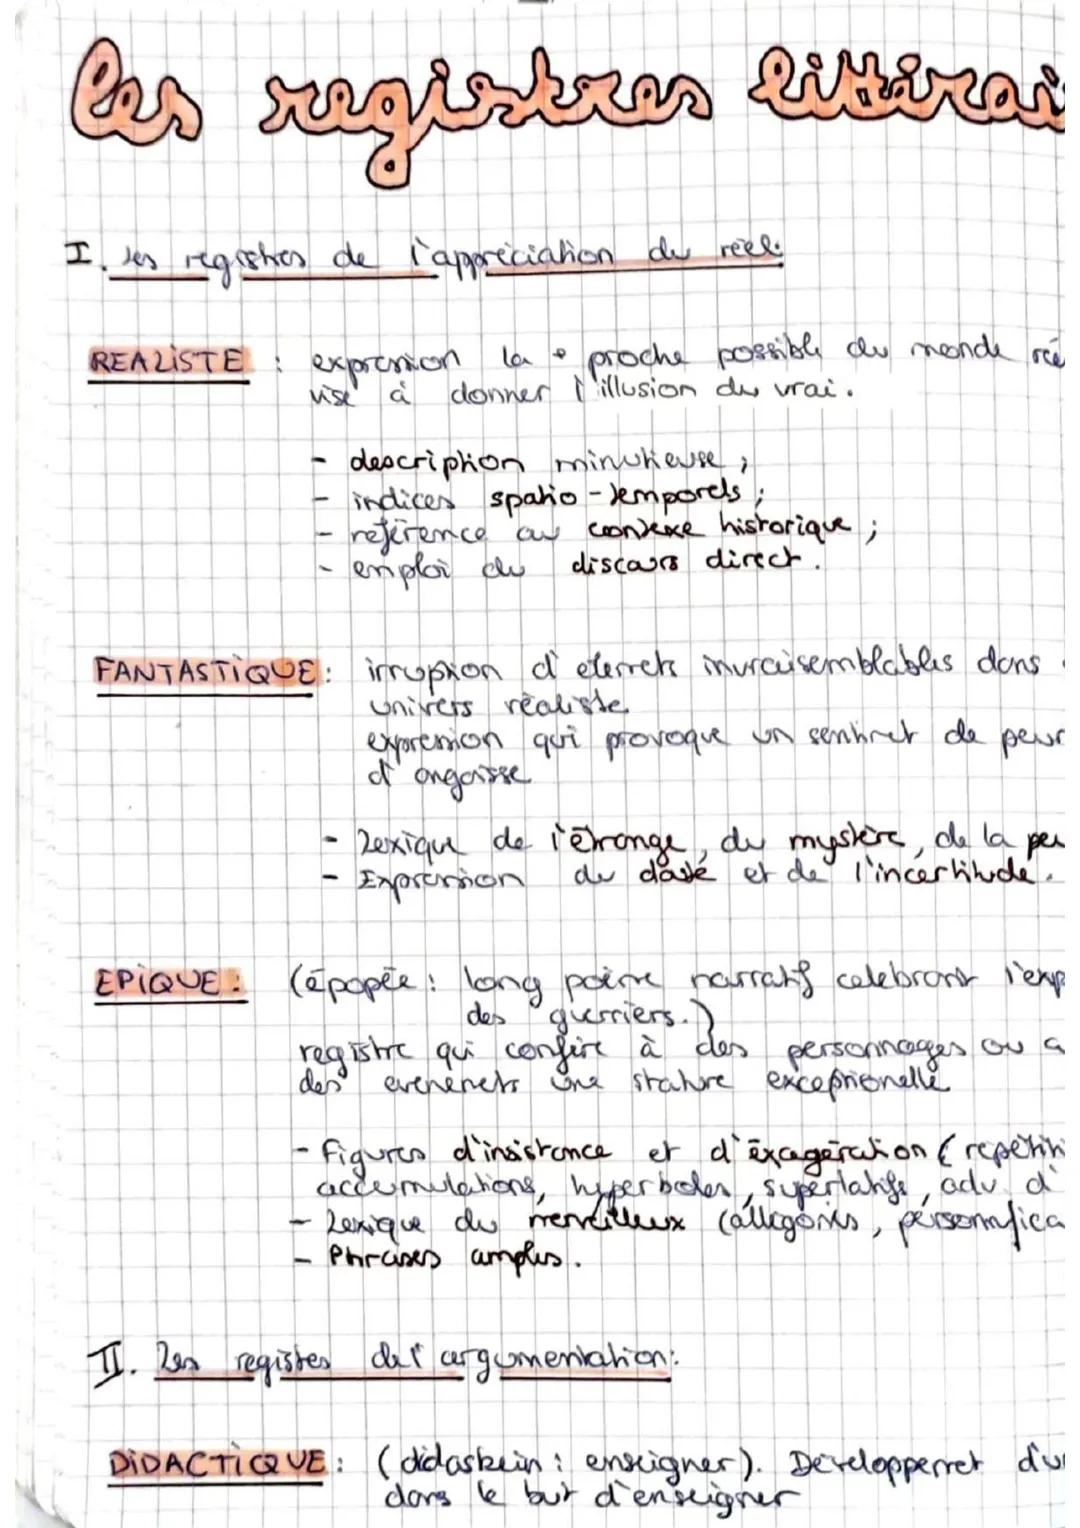 les registres littérai
I. Les registres de l'appréciation du réel:
REALISTE : expression la + proche possible du monde rée
vise à donner l'illusion du vrai.
- description minutieuse ;
- indices spatio-temporels ;
- référence au contexe historique ;
- emploi du discours direct.
FANTASTIQUE : irruption d'elemets invraisemblables dans
univers réaliste.
expression qui provoque un sentimet de peur
d'angoisse
- Lexique de l'étrange, du mystère, de la peu
- Expression du doute et de l'incertitude.
EPIQUE : (épopée : long poème narratif celebrant l'exp
des guerriers.)
registre qui confère à des personnages ou a
des evenemets une stature exceptionelle
- Figures d'insistance et d'éxagération (repétiti
accumulations, hyperboles, superlatifs, adv. d'
- Lexique du merveilleux (allégories, personnifica
- Phrases amples.
II. Les registes de l'argumentation:
DIDACTIQUE : (didaskein : enseigner). Développemet d'u
dans le but d'enseigner